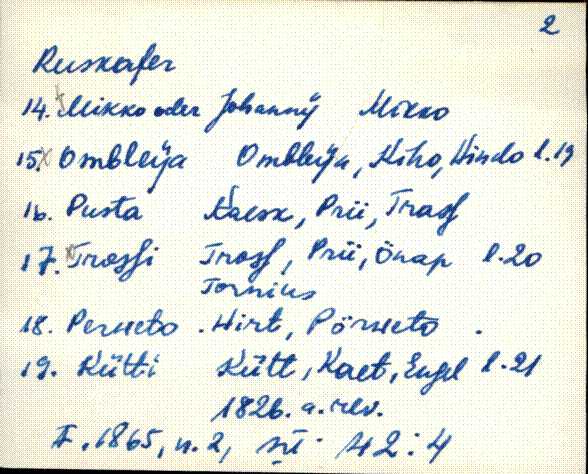 2
Ruskafer
14. Mikko oder Johanný Mikko
15. Ombleÿa Ombleÿa, Kiho, Hindo l.19
16. Pusta Kaesk, Prii, Trass
17. Trossi Tross, Prii, Önap l.20
Tornius
18. Perneto . Hirt, Pörneto .
19. Kütti Kütt, Kaet, Engel l.21
1826. a. rev.
F. 1865, n. 2, 2:4